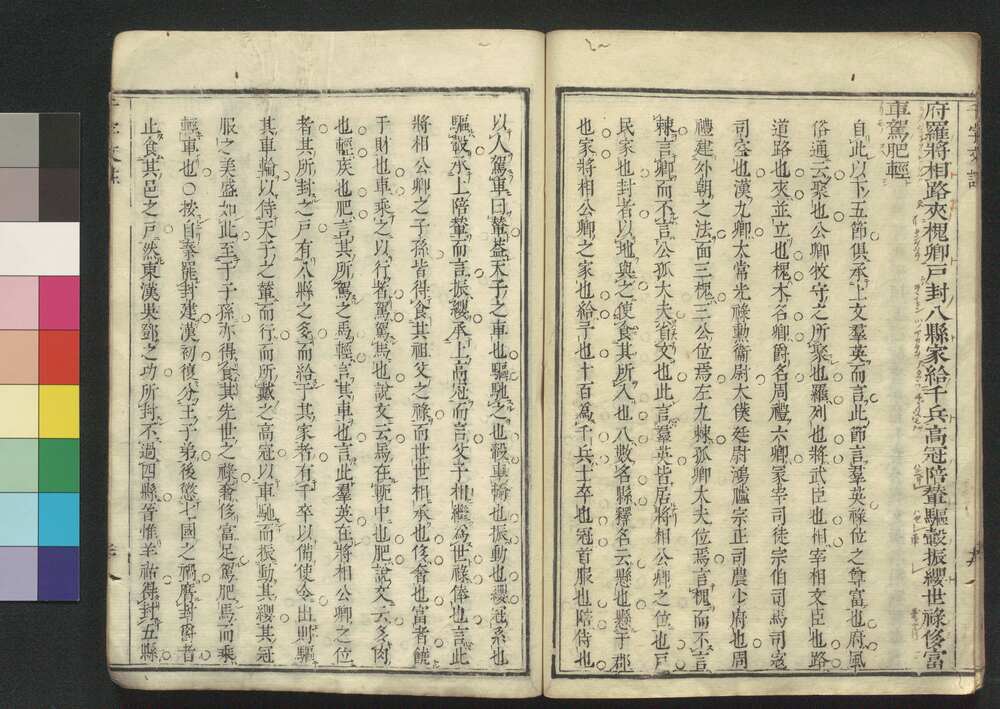 府羅將相路夾槐卿戸封八縣家給千兵高冠陪輦驅轂振纓世祿侈富
車駕肥輕
自此以下五節俱承上文羣英而言此節言羣英祿位之尊富也府風
俗通云聚也公卿牧守之所聚也羅列也將武臣也相宰相文臣也路
道路也夾並立也槐木名卿爵名周禮六卿冢宰司徒宗伯司馬司寇
司空也漢九卿太常光祿勳衞尉大僕廷尉鴻臚宗正司農少府也周
禮建外朝之法面三槐三公位焉左九棘孤卿大夫位焉言槐而不言
棘言卿而不言公孤大夫省文也此言羣英皆居將相公卿之位也戸
民家也封者以地與之使食其所入也八數名縣釋名云懸也懸于郡
也家將相公卿之家也給予也十百爲千兵士卒也冠首服也陪侍也
以人駕車曰輦葢天子之車也驅馳之也轂車輪也振動也纓冠系也
驅轂承上陪輦而言振纓承上高冠而言父子相繼爲世祿俸也言此
將相公卿之子孫皆得食其祖父之祿而世世相承也侈奢也富者饒
于財也車乘之以行者駕駕馬也說文云馬在軛中也肥說文云多肉
也輕疾也肥言其所駕之馬輕言其車也言此羣英在將相公卿之位
者其所封之戸有八縣之多而給于其家者有千卒以備使令出則驅
其車輪以侍天子之輦而行而所戴之高冠以車馳而振動其纓其冠
服之美盛如此至于子孫亦得食其先世之祿奢侈富足駕肥馬而乘
輕車也○按自秦罷封建漢初復分王子弟後懲七國之禍廢封爵者
止食其邑之戸然東漢吳鄧之功所封不過四縣晉惟羊祜得封五縣